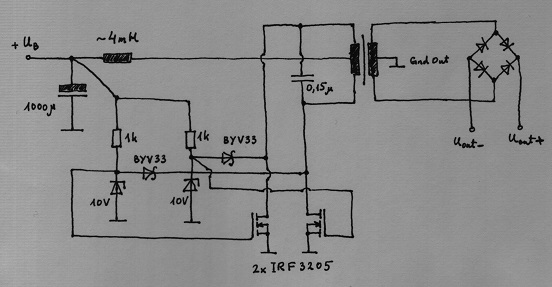 ~4mH
+ UB
1000µ
1k
1k
BYV33
BYV33
10V
10V
0,15µ
Gnd Out
Uout-
Uout+
2x IRF3205